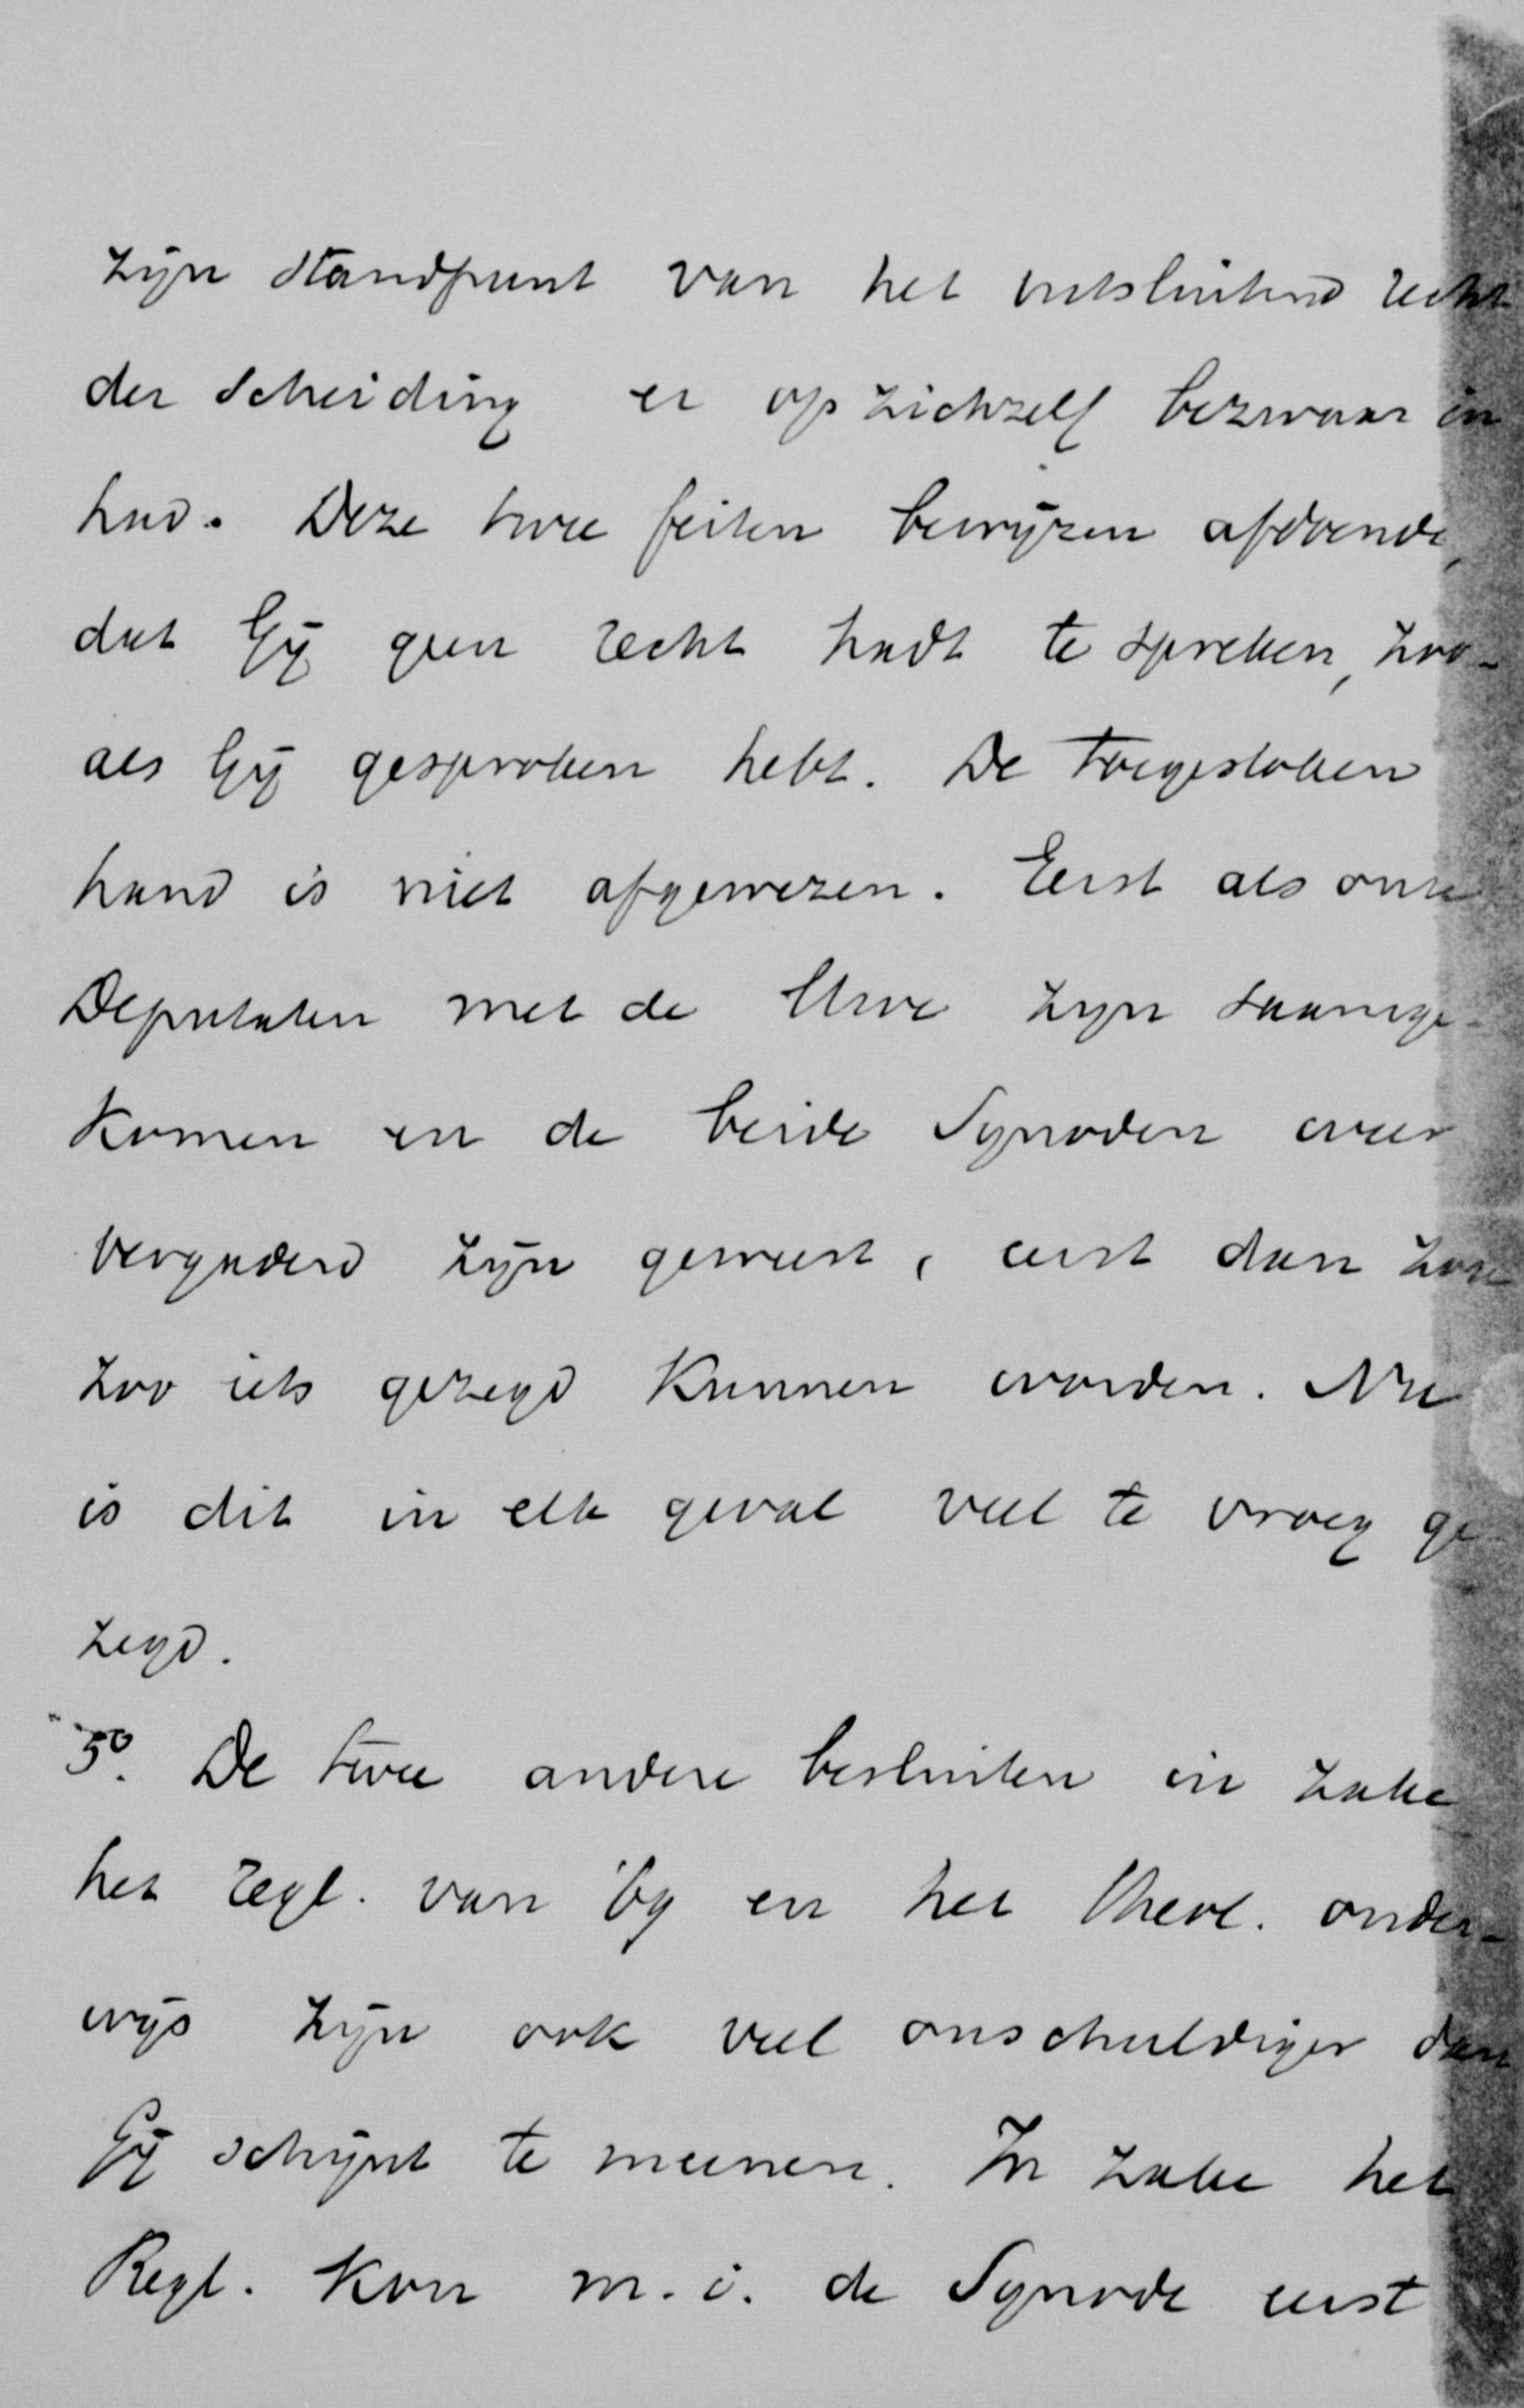 zijn standpunt van het uitsluitend recht
der Scheiding er op zichzelf bezwaar in
had. Deze twee feiten bewijzen afdoende,
dat Gij geen recht hadt te spreken, zoo-
als Gij gesproken hebt. De toegestoken
hand is niet afgewezen. Eerst als onze
Deputaten met de Uwe zijn saamge-
komen en de beide Synoden weer
vergaderd zijn geweest, eerst dan zou
zoo iets gezegd kunnen worden. Nu
is dit in elk geval veel te vroeg ge-
zegd.
5o. De twee andere besluiten in zake
het regl. van '69 en het theol. onder-
wijs zijn ook veel onschuldiger dan
Gij schijnt te meenen. In zake het
Regl. kon m.i. de Synode eerst